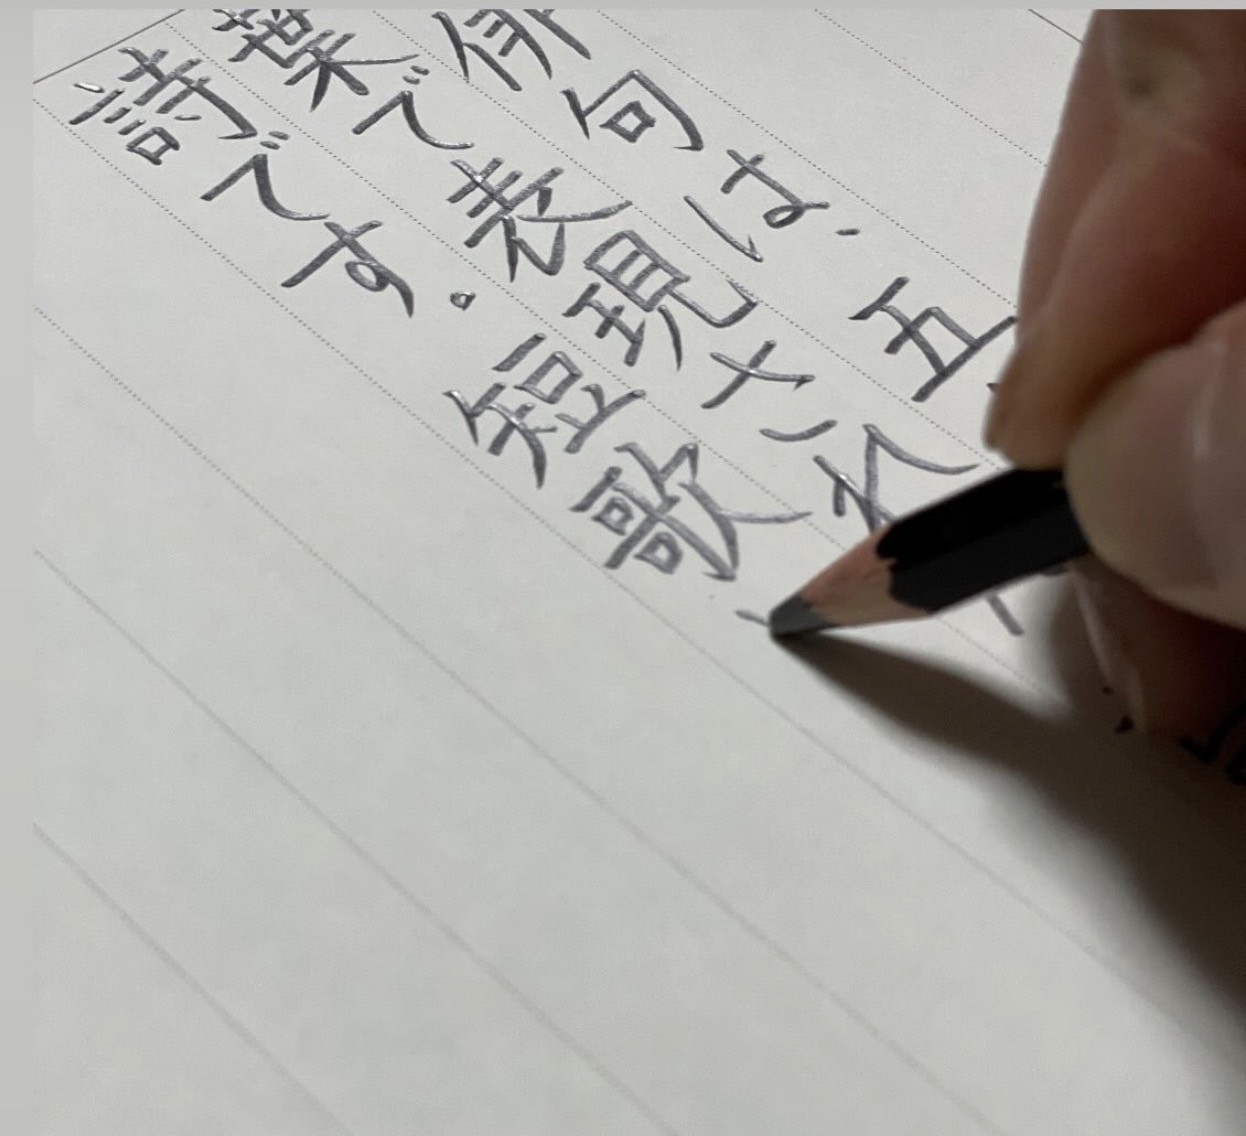 俳句は、五
葉で表現され
詩です。短歌